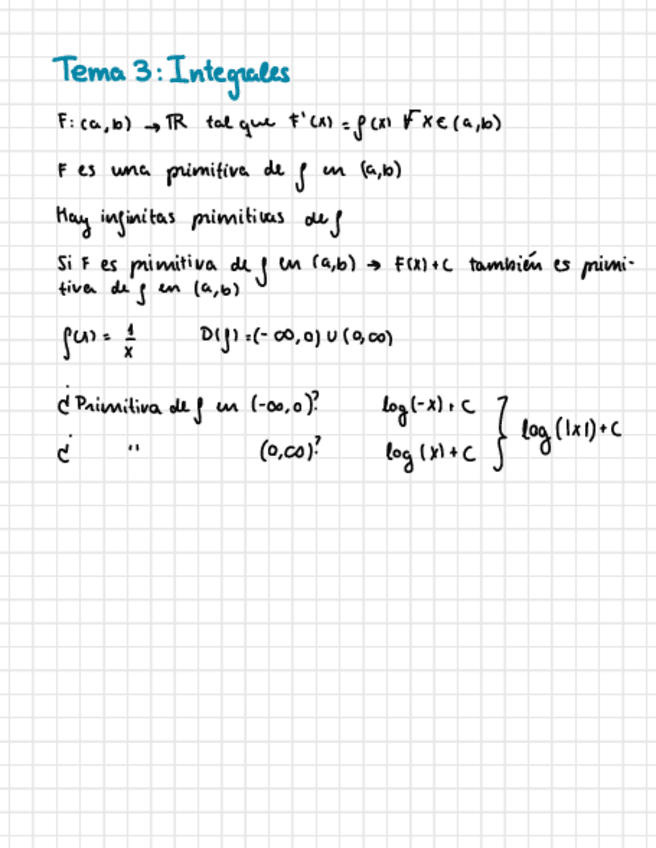 Tema 3: Integrales
F: (a,b) → ℝ tal que F'(x) = f(x) ∀ x ∈ (a,b)
F es una primitiva de f en (a,b)
Hay infinitas primitivas de f
Si F es primitiva de f en (a,b) → F(x)+C también es primi-
tiva de f en (a,b)
f(x) = 1/x D(f) = (-∞,0) ∪ (0,∞)
¿Primitiva de f en (-∞,0)? log(-x) + C } log(|x|)+C
¿ " (0,∞)? log(x) + C